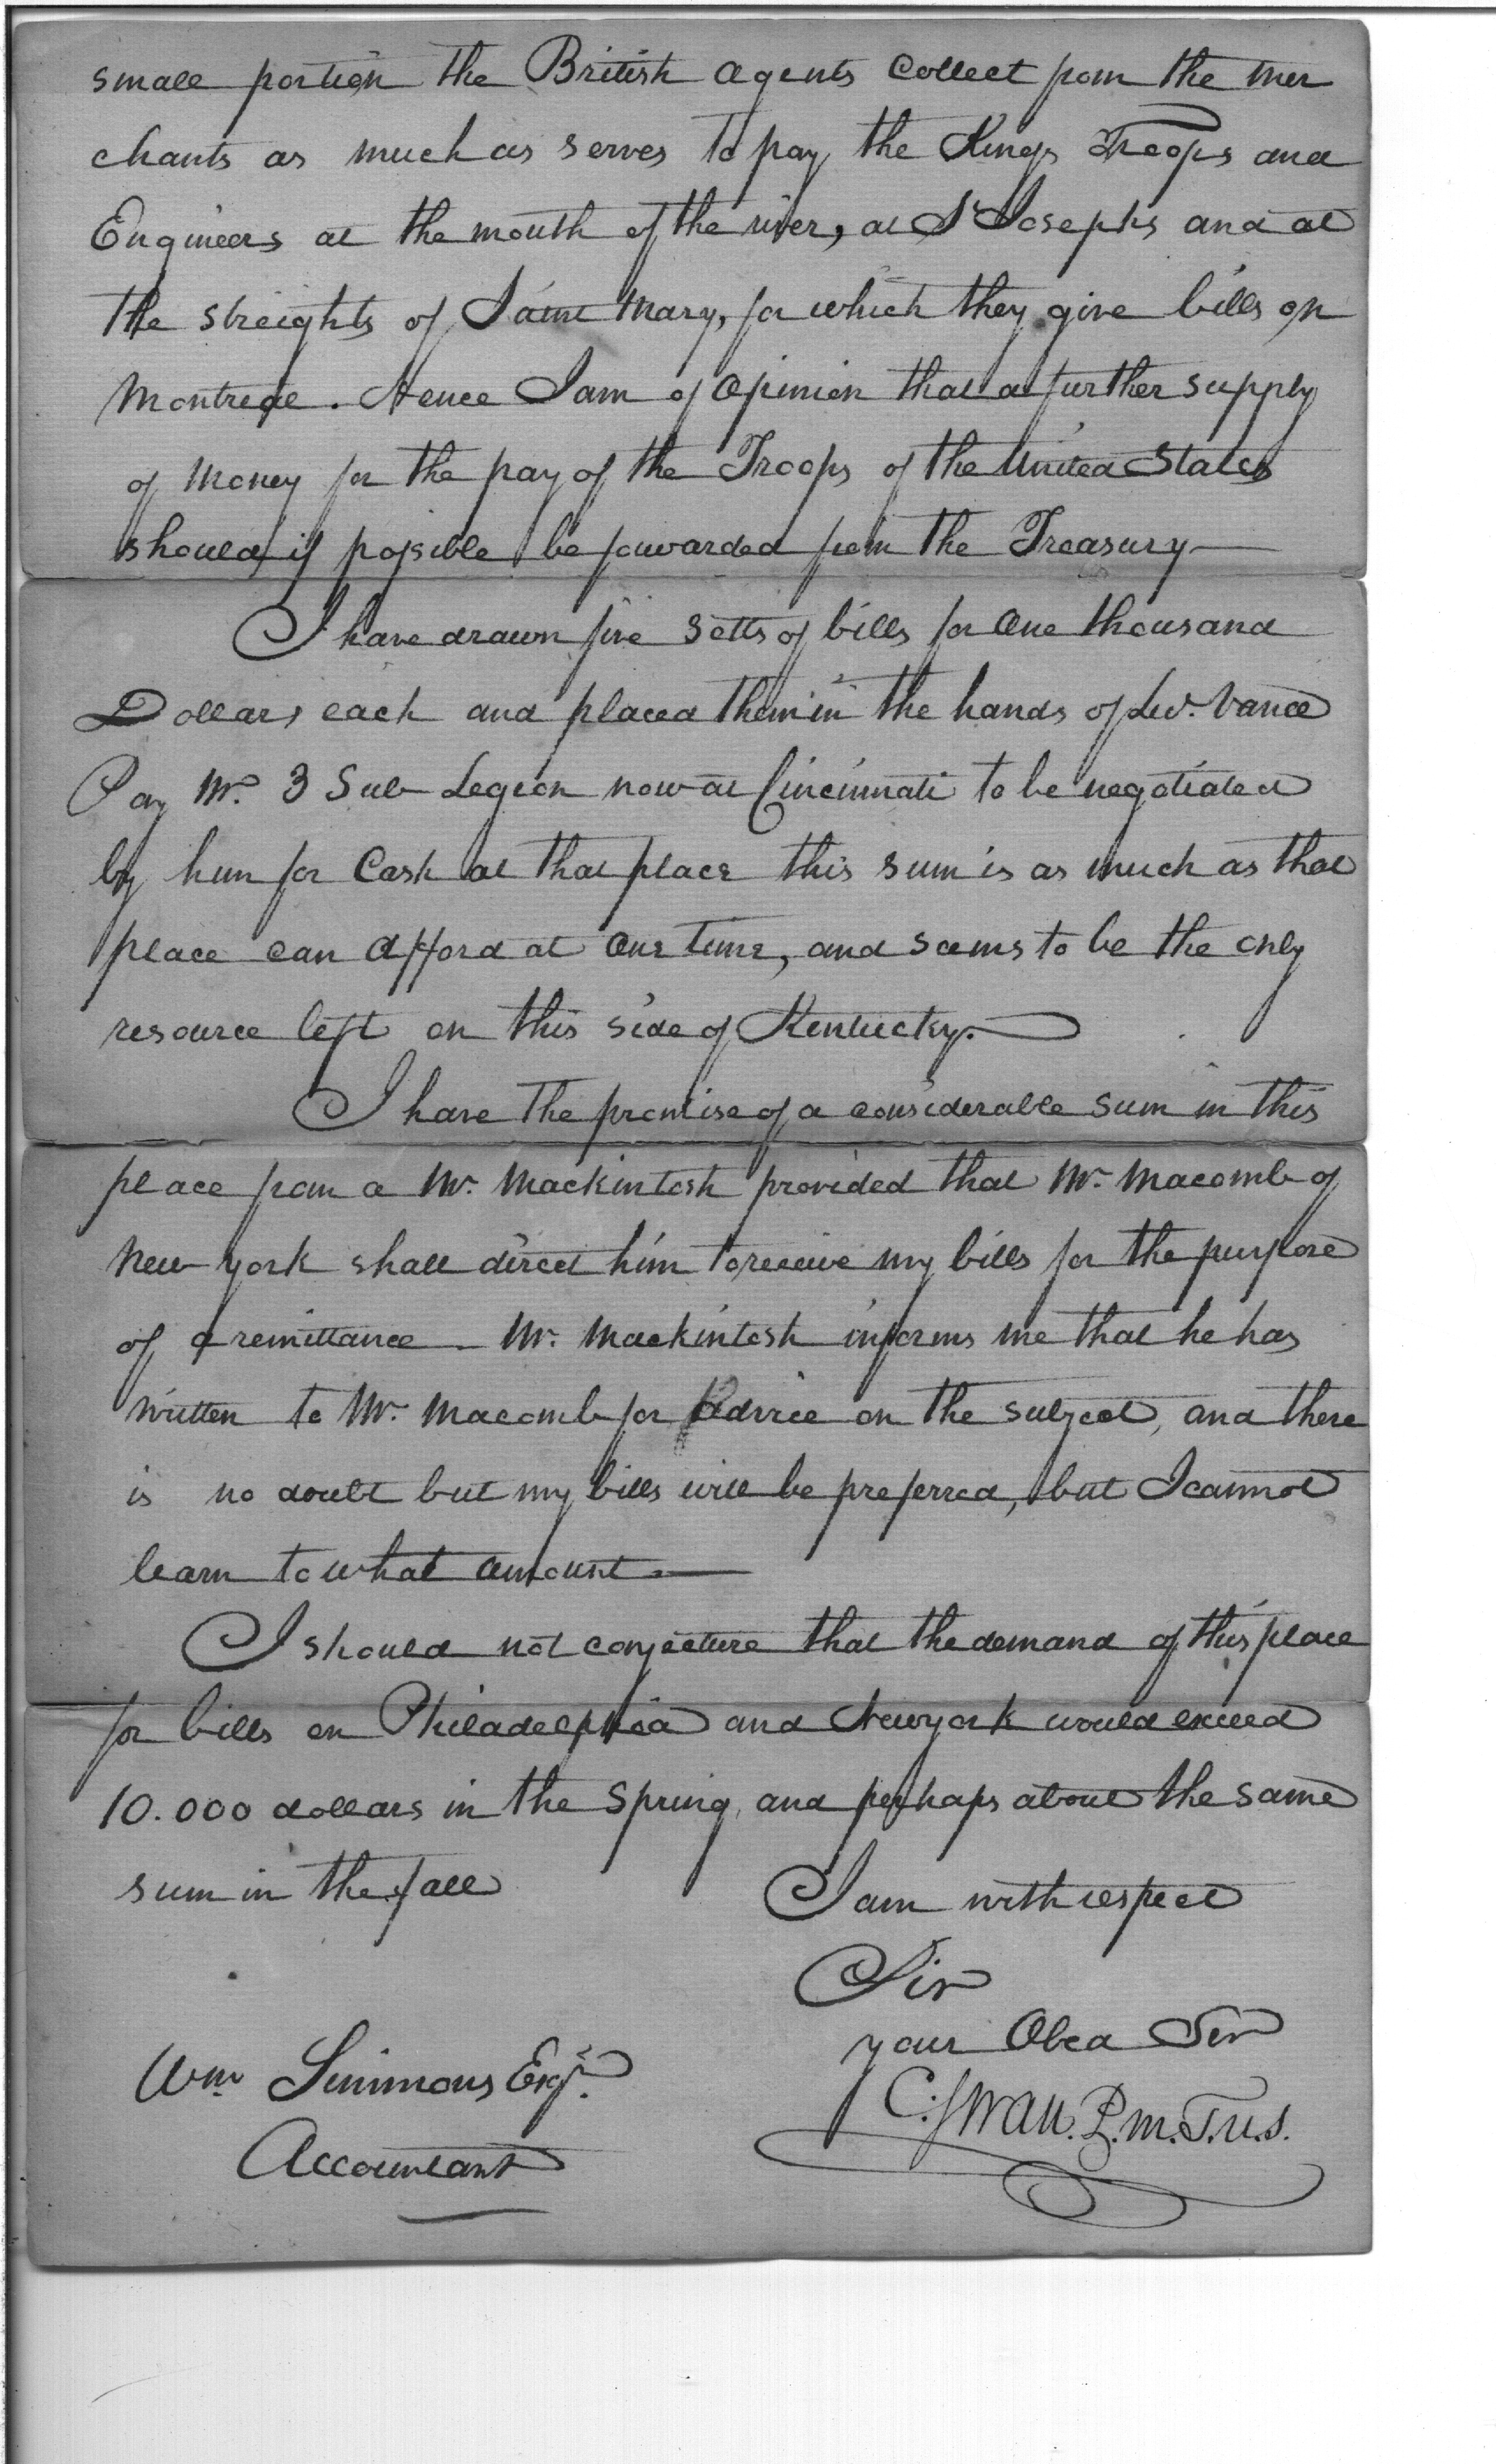 small portion the British agents Collect from the mer
chants as much as serves to pay the Kings Troops and
Engineers at the mouth of the river, at St Josephs and at
the streights of Saint Mary, for which they give bills on
Montreal. Hence I am of Opinion that a further supply
of Money for the pay of the Troops of the United States
should if possible be forwarded from the Treasury—
I have drawn five Setts of bills for One thousand
Dollars each and placed them in the hands of Lieut. Vance
Pay Mr. 3 Sub Legion now at Cincinnati to be negotiated
by him for Cash at that place this sum is as much as that
place can Afford at One time, and seems to be the only
resource left on this side of Kentucky.—
I have the promise of a considerable sum in this
place from a Mr. Mackintosh provided that Mr. Macomb of
New York shall direct him to receive my bills for the purpose
of a remittance – Mr. Mackintosh informs me that he has
written to Mr. Macomb for Advice on the subject, and there
is no doubt but my bills will be preferred, but I cannot
learn to what amount.—
I should not conjecture that the demand of this place
for bills on Philadelphia and New York would exceed
10.000 dollars in the Spring, and perhaps about the same
sum in the fall
I am with respect
Sir
your Obed Ser
C. Swan. P.M.T.U.S.
Wm Simmons Esqr.
Accountant